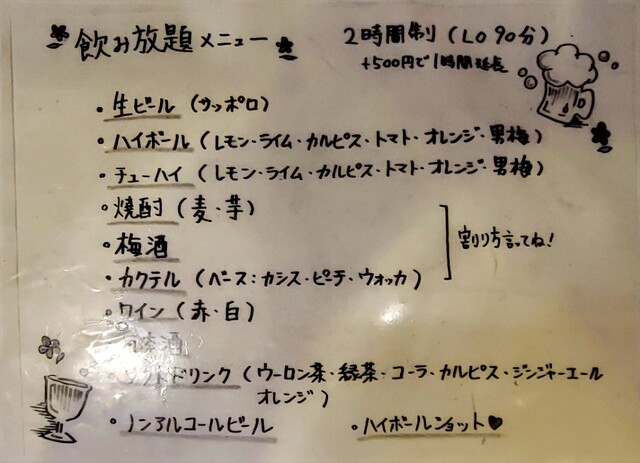 飲み放題メニュー
2時間制 (LO 90分)
+500円で1時間延長
・生ビール (サッポロ)
・ハイボール (レモン・ライム・カルピス・トマト・オレンジ・男梅)
・チューハイ (レモン・ライム・カルピス・トマト・オレンジ・男梅)
・焼酎 (麦・芋)
・梅酒
・カクテル (ベース:カシス・ピーチ・ウォッカ)
割り方言ってね!
・ワイン (赤・白)
酒
ソフトドリンク (ウーロン茶・緑茶・コーラ・カルピス・ジンジャーエール
オレンジ)
・ノンアルコールビール
・ハイボールショット♥